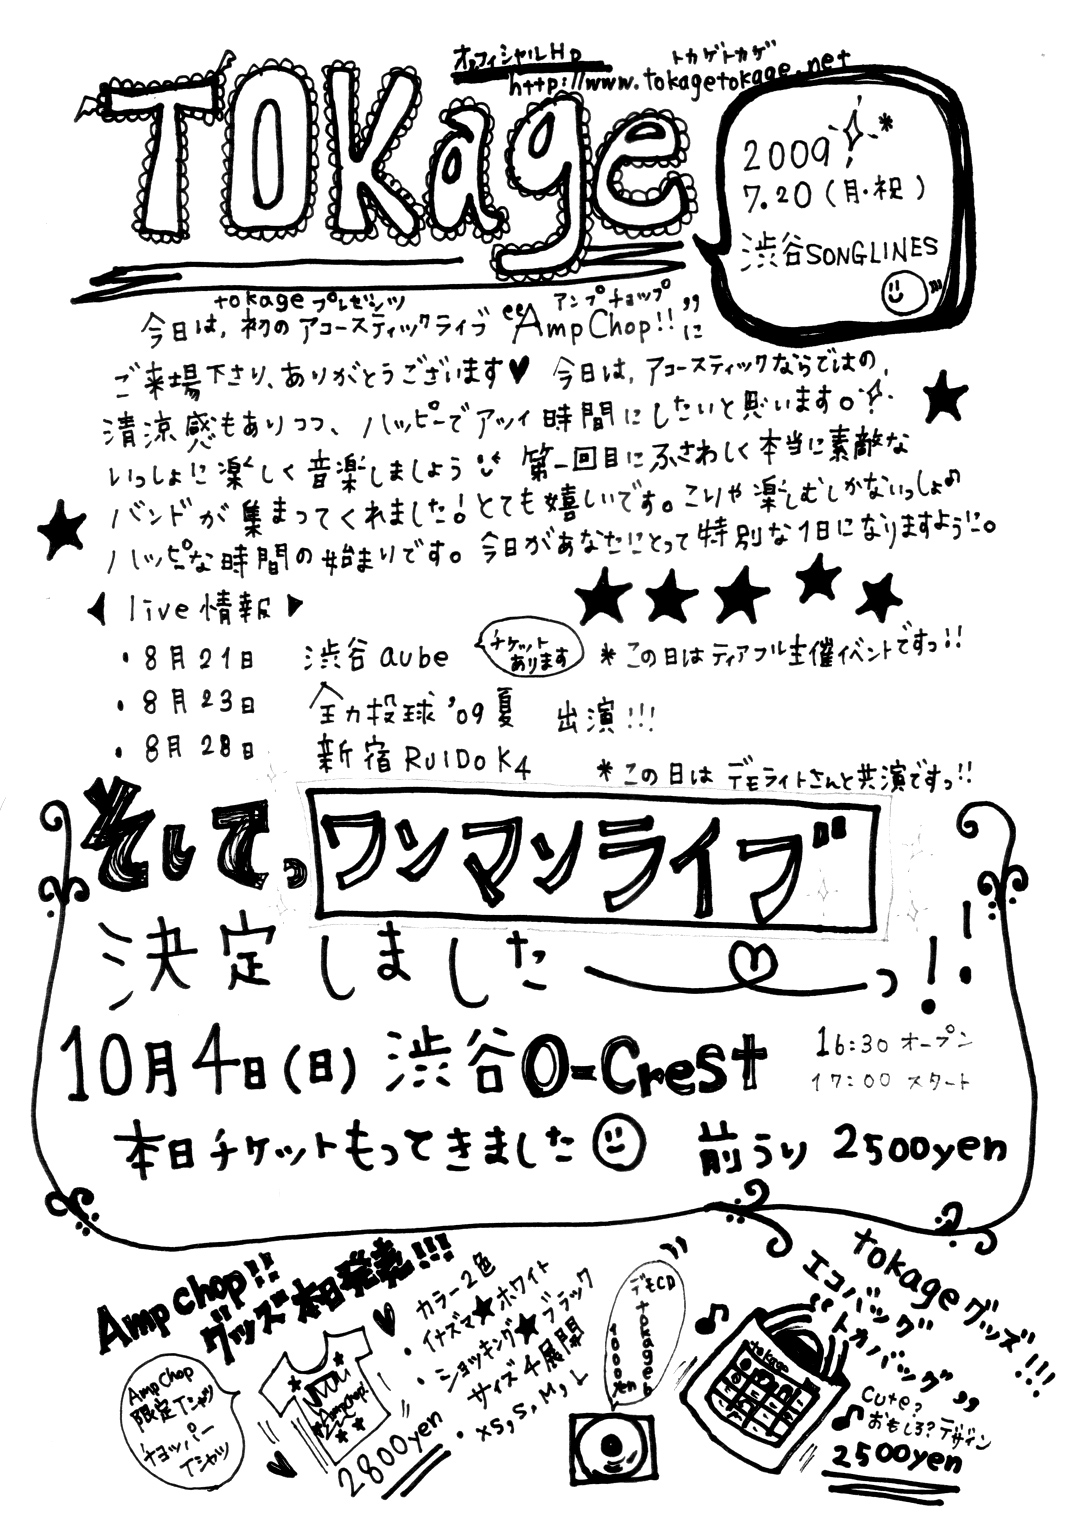 オフィシャルHp
トカゲトカゲ
http://www.tokagetokage.net
TOKage
2009
7.20(月・祝)
渋谷SONGLINES
tokageプレゼンツ
アンプチョップ
今日は、初のアコースティックライブ "AmpChop!!"に
ご来場下さり、ありがとうございます♥ 今日は、アコースティックならではの、
清涼感もありつつ、ハッピーでアツイ時間にしたいと思います。
いっしょに楽しく音楽しましょう 第一回目にふさわしく本当に素敵な
バンドが集まってくれました!とても嬉しいです。こりゃ楽しむしかないっしょ♪
ハッピーな時間の始まりです。今日があなたにとって特別な1日になりますように。
◀ live情報 ▶
・8月21日 渋谷aube チケットあります *この日はティアフル主催イベントですっ!!
・8月23日 全力投球'09夏 出演!!!
・8月28日 新宿RUIDO K4 *この日はデモライトさんと共演ですっ!!
そしてっ ワンマンライブ
決定しましたーっ!!
10月4日(日) 渋谷O-Crest
16:30 オープン
17:00 スタート
本日チケットもってきました 前うり 2500yen
Amp chop!!
グッズ本日発表!!!
Amp Chop
限定Tシャツ
チョッパー
Tシャツ
AmpChop!
2800yen
・カラー2色
イナズマ★ホワイト
・ショッキング★ブラック
サイズ4展開
・XS,S,M,L
デモCD
tokage6
1000yen
tokageグッズ!!!
エコバッグ
"トカバッグ"
tokage
cute?
おもしろ?デザイン
2500yen